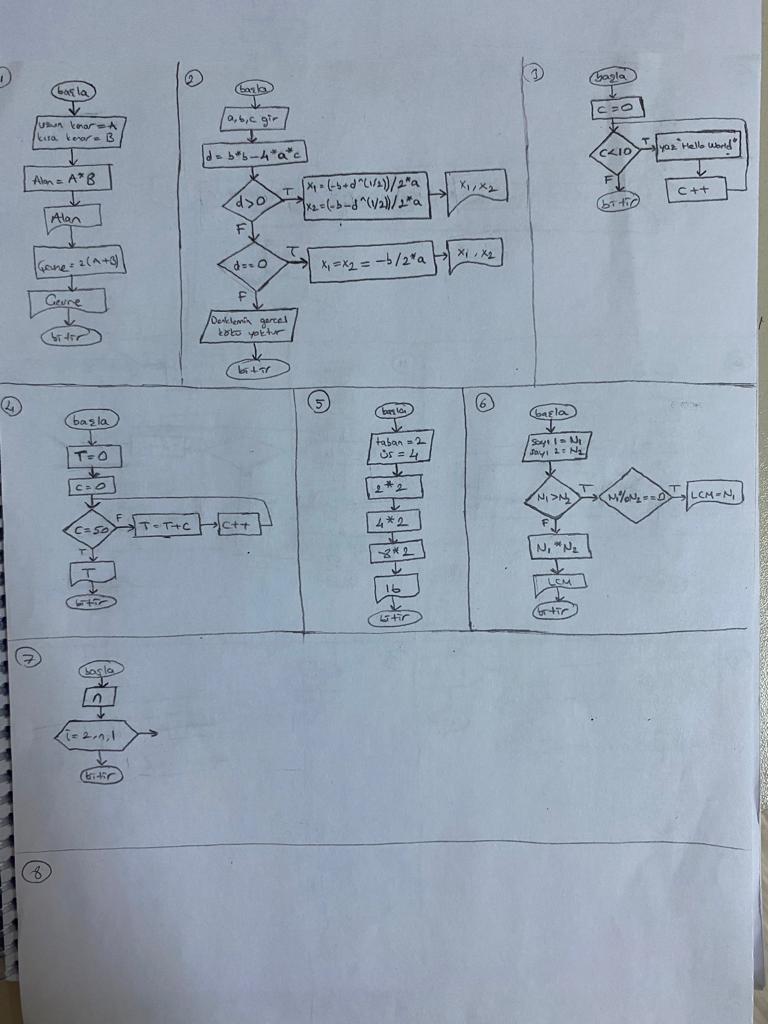 1
başla
uzun kenar = A
kısa kenar = B
Alan = A*B
Alan
Çevre = 2(A+B)
Çevre
bitir
2
başla
a, b, c gir
d = b*b-4*a*c
d>0
T
x₁=(-b+d^(1/2))/2*a
x₂=(-b-d^(1/2))/2*a
x₁, x₂
F
d==0
T
x₁=x₂ = -b/2*a
x₁, x₂
F
Denklemin gerçel
kökü yoktur
bitir
3
başla
C=0
C<10
T
yaz "Hello World"
F
C++
bitir
4
başla
T=0
C=0
C=50
F
T=T+C
C++
T
T
bitir
5
başla
taban = 2
üs = 4
2*2
4*2
8*2
16
bitir
6
başla
sayı 1 = N₁
sayı 2 = N₂
N₁>N₂
T
N₁%N₂==0
T
LCM=N₁
F
N₁*N₂
LCM
bitir
7
başla
n
i=2,n,1
bitir
8